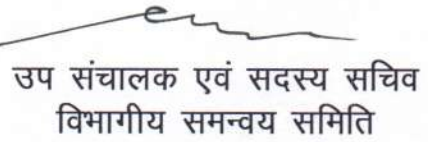 उप संचालक एवं सदस्य सचिव
विभागीय समन्वय समिति